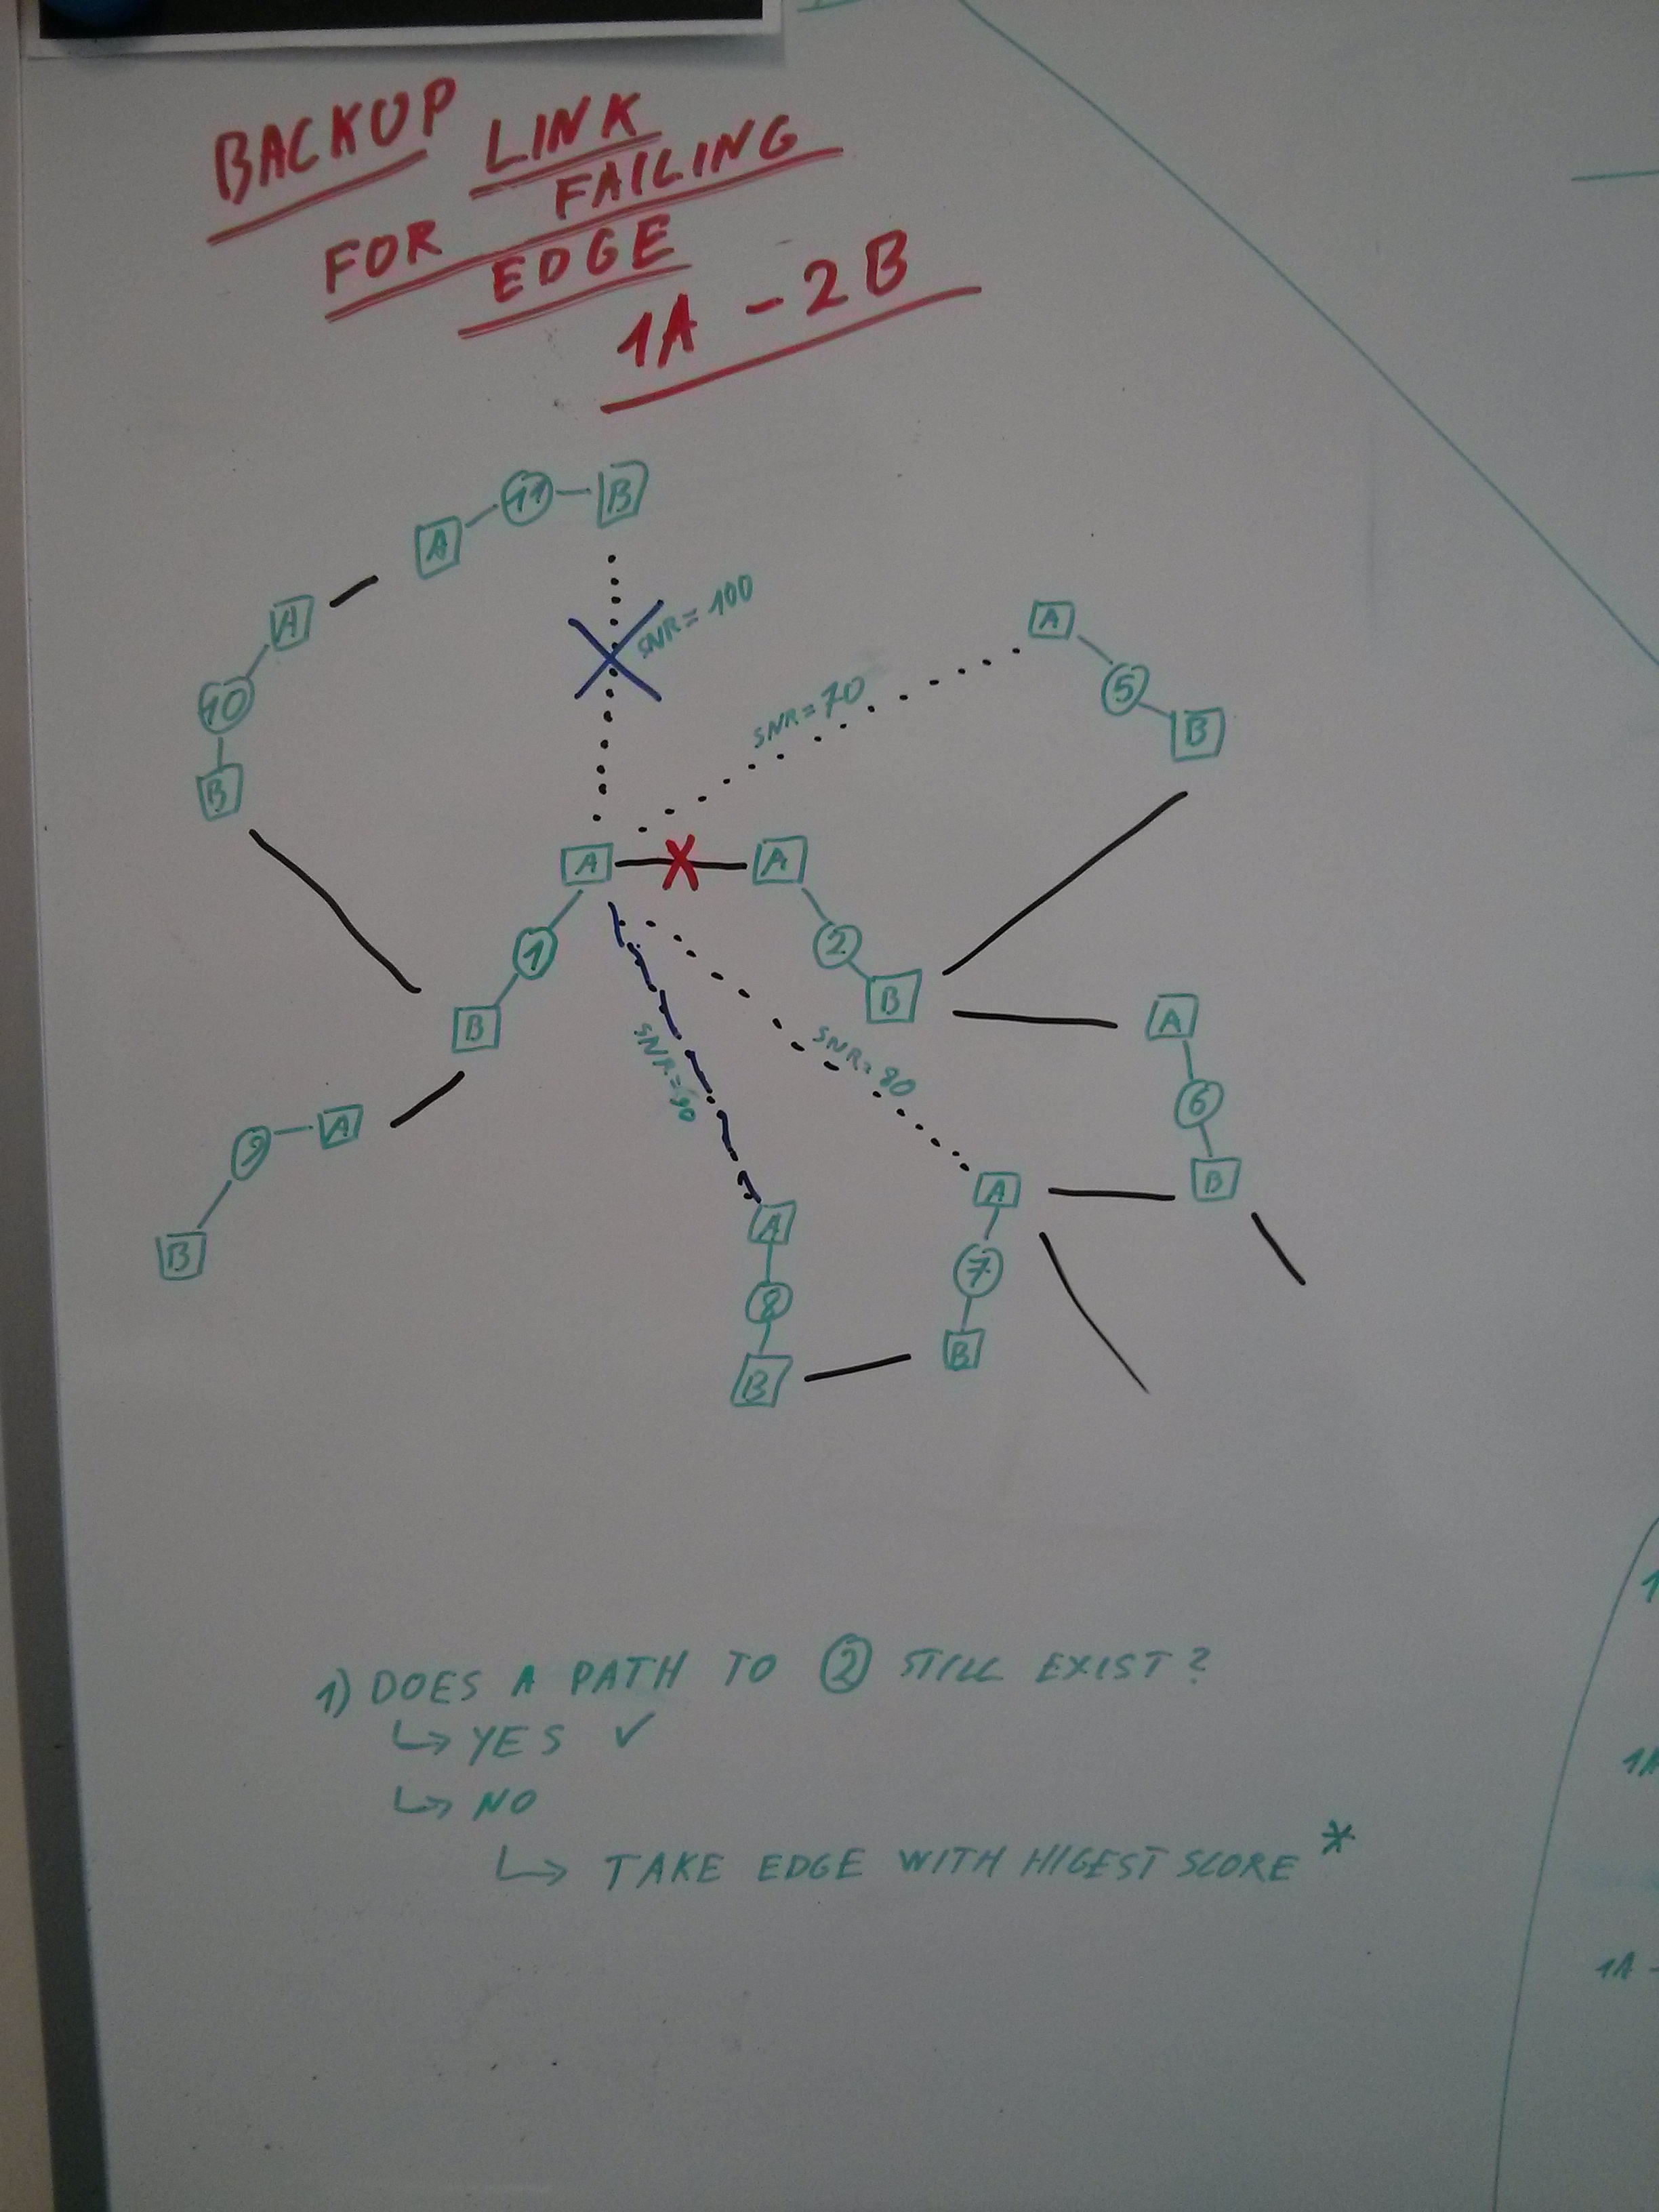 BACKUP LINK
FOR FAILING
EDGE
1A - 2B
A 11 B
SNR = 100
A
A
SNR = 70
5
10
B
B
A
A
1
2
B
B
A
SNR = 90
SNR = 80
9 A
6
B
A
A
B
8
7
B
B
1) DOES A PATH TO 2 STILL EXIST?
↳ YES ✓
↳ NO
↳ TAKE EDGE WITH HIGEST SCORE *
1A
1A -